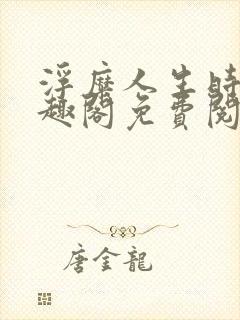 浮靡人生時
趣閣免費閱
唐金龍